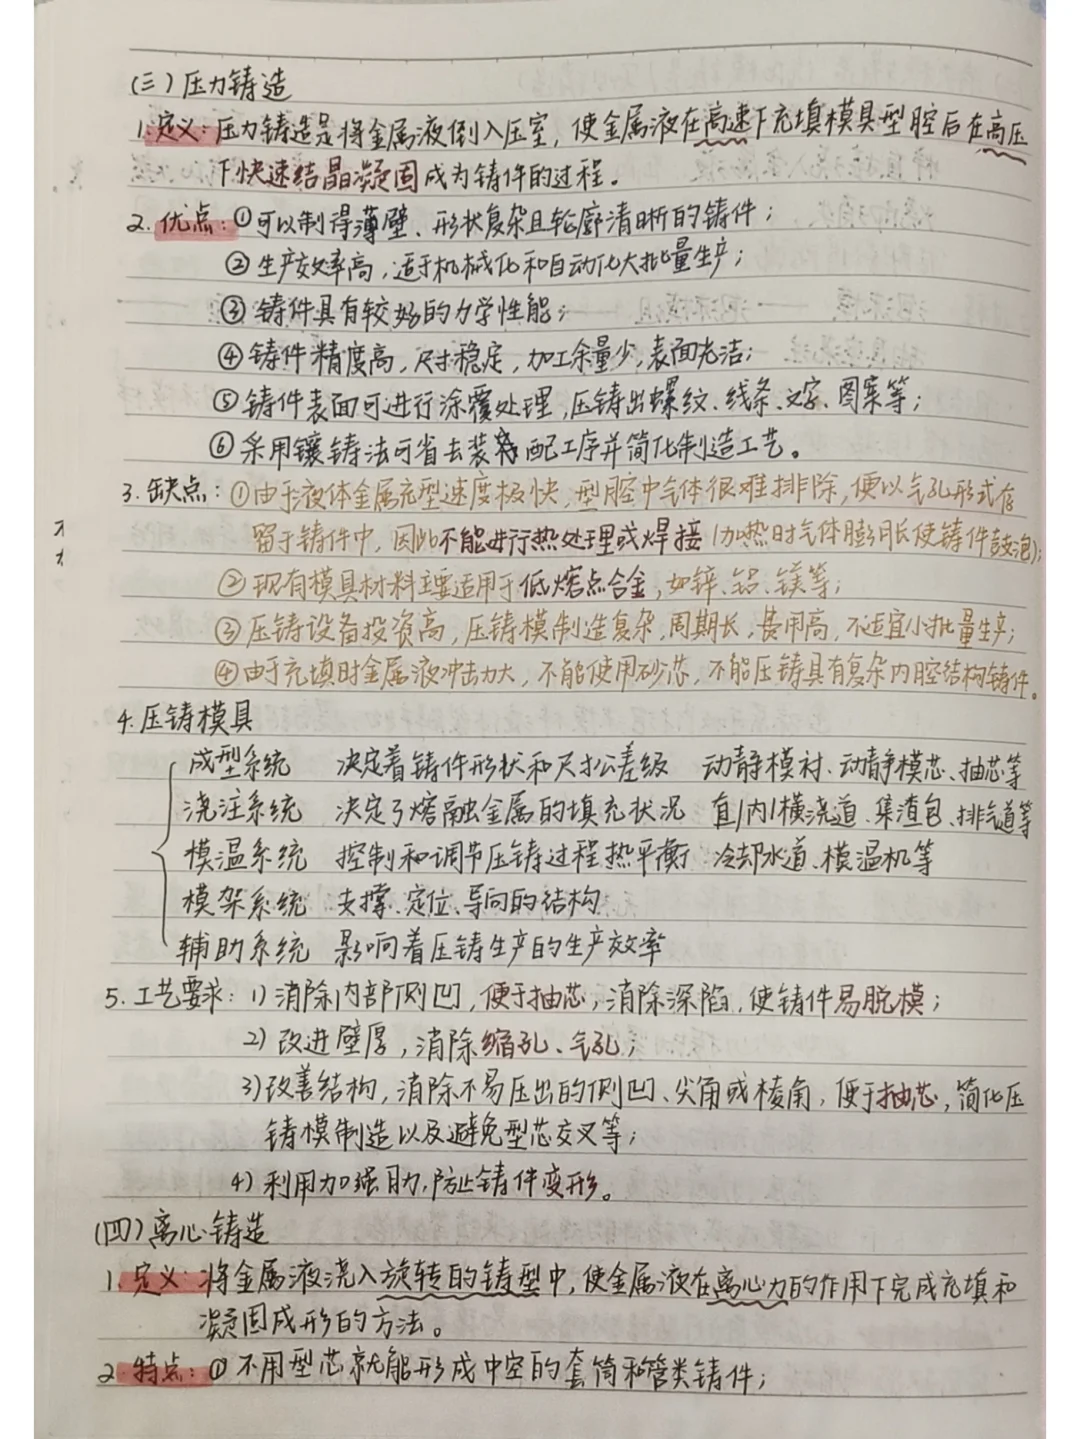 (三)压力铸造
1.定义:压力铸造是将金属液倒入压室,使金属液在高速下充填模具型腔后在高压
下快速结晶凝固成为铸件的过程。
2.优点:①可以制得薄壁、形状复杂且轮廓清晰的铸件;
②生产效率高,适于机械化和自动化大批量生产;
③铸件具有较好的力学性能;
④铸件精度高,尺寸稳定,加工余量少,表面光洁;
⑤铸件表面可进行涂覆处理,压铸出螺纹、线条、文字、图案等;
⑥采用镶铸法可省去装配工序并简化制造工艺。
3.缺点:①由于液体金属充型速度极快,型腔中气体很难排除,便以气孔形式存
留于铸件中,因此不能进行热处理或焊接(加热时气体膨胀使铸件鼓泡);
②现有模具材料主要适用于低熔点合金,如锌、铝、镁等;
③压铸设备投资高,压铸模制造复杂,周期长,费用高,不适宜小批量生产;
④由于充填时金属液冲击力大,不能使用砂芯,不能压铸具有复杂内腔结构铸件。
4.压铸模具
成型系统 决定着铸件形状和尺寸公差级 动静模衬、动静模芯、抽芯等
浇注系统 决定了熔融金属的填充状况 直/内/横浇道、集渣包、排气道等
模温系统 控制和调节压铸过程热平衡 冷却水道、模温机等
模架系统 支撑、定位、导向的结构
辅助系统 影响着压铸生产的生产效率
5.工艺要求:1)消除内部侧凹,便于抽芯,消除深陷,使铸件易脱模;
2)改进壁厚,消除缩孔、气孔;
3)改善结构,消除不易压出的侧凹、尖角或棱角,便于抽芯,简化压
铸模制造以及避免型芯交叉等;
4)利用加强肋,防止铸件变形。
(四)离心铸造
1.定义:将金属液浇入旋转的铸型中,使金属液在离心力的作用下完成充填和
凝固成形的方法。
2.特点:①不用型芯就能形成中空的套筒和管类铸件;